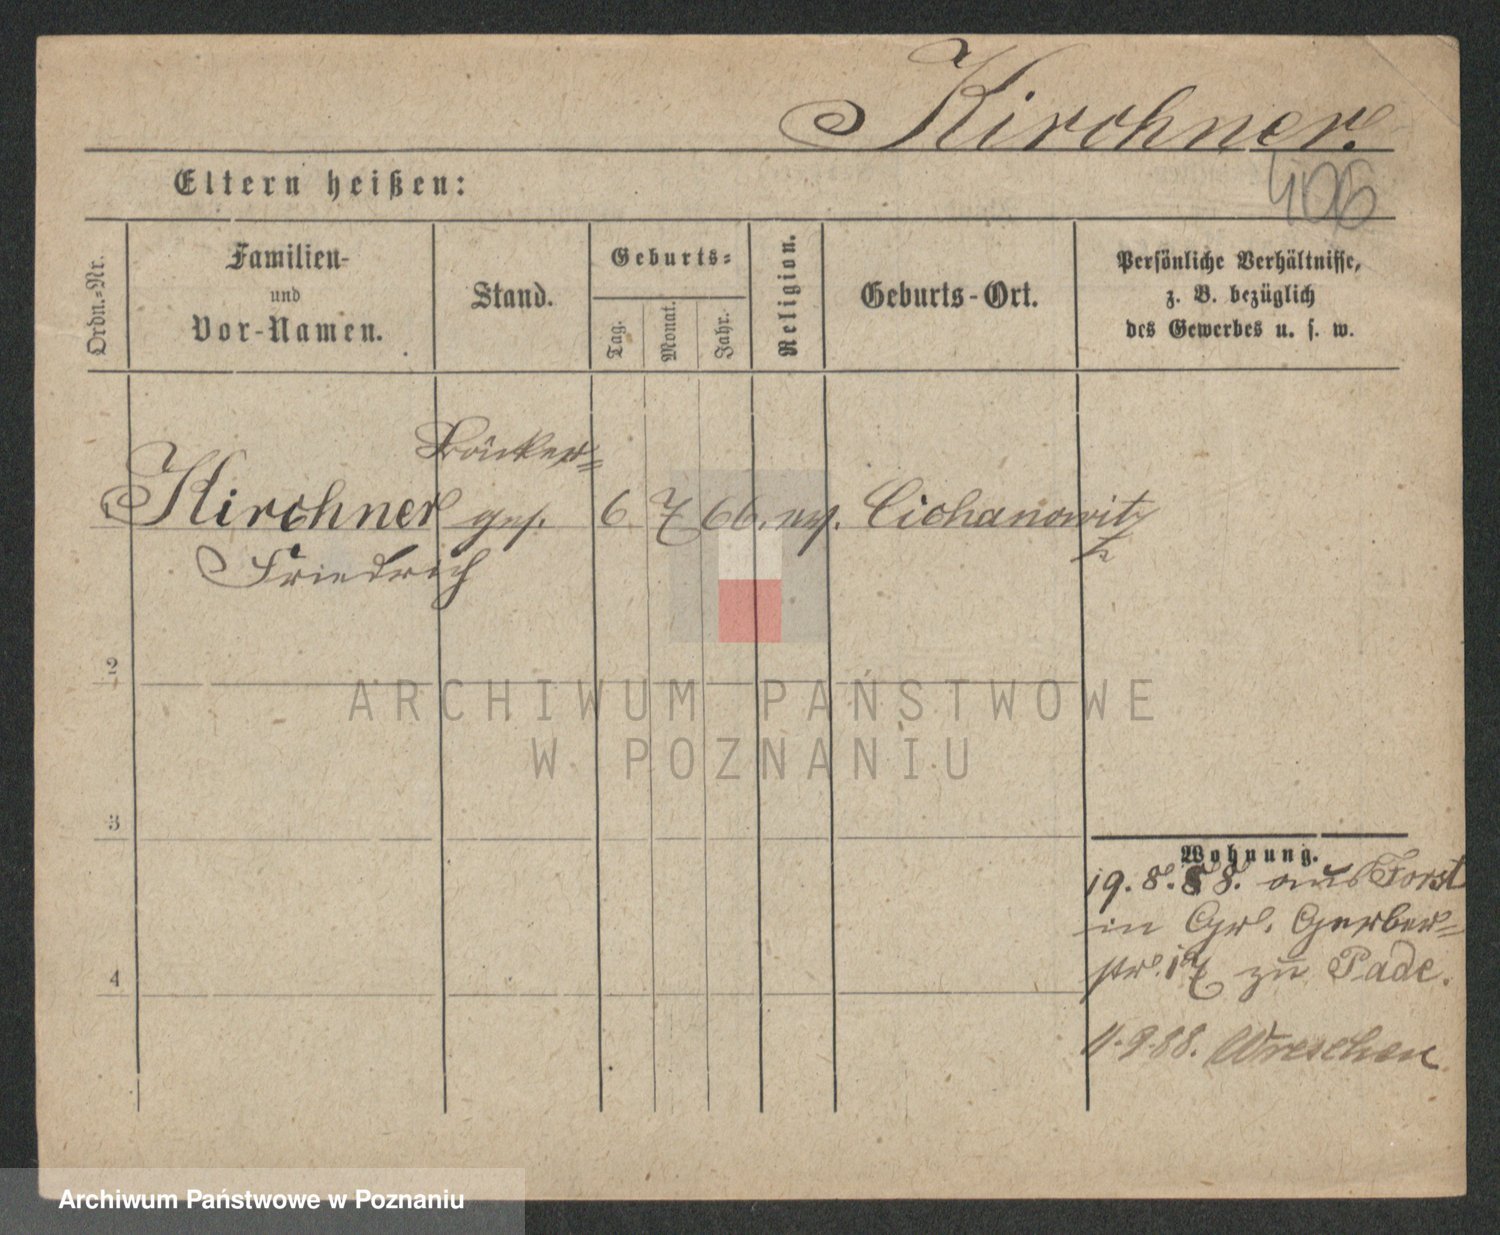 Kirchner.
406
Eltern heißen:
Ordn.-Nr.
Familien-
und
Vor-Namen.
Stand.
Geburts-
Tag.
Monat.
Jahr.
Religion.
Geburts-Ort.
Persönliche Verhältnisse,
z. B. bezüglich
des Gewerbes u. s. w.
Bäcker-
1 Kirchner ges. 6. 7. 66. ev. Cichanowitz
Friedrich
2
ARCHIWUM PAŃSTWOWE
W POZNANIU
3
Wohnung.
19. 8. 88. aus Forst
in Gr. Gerber-
str. 17 zu Pade.
4
11.9.88. Wreschen
Archiwum Państwowe w Poznaniu